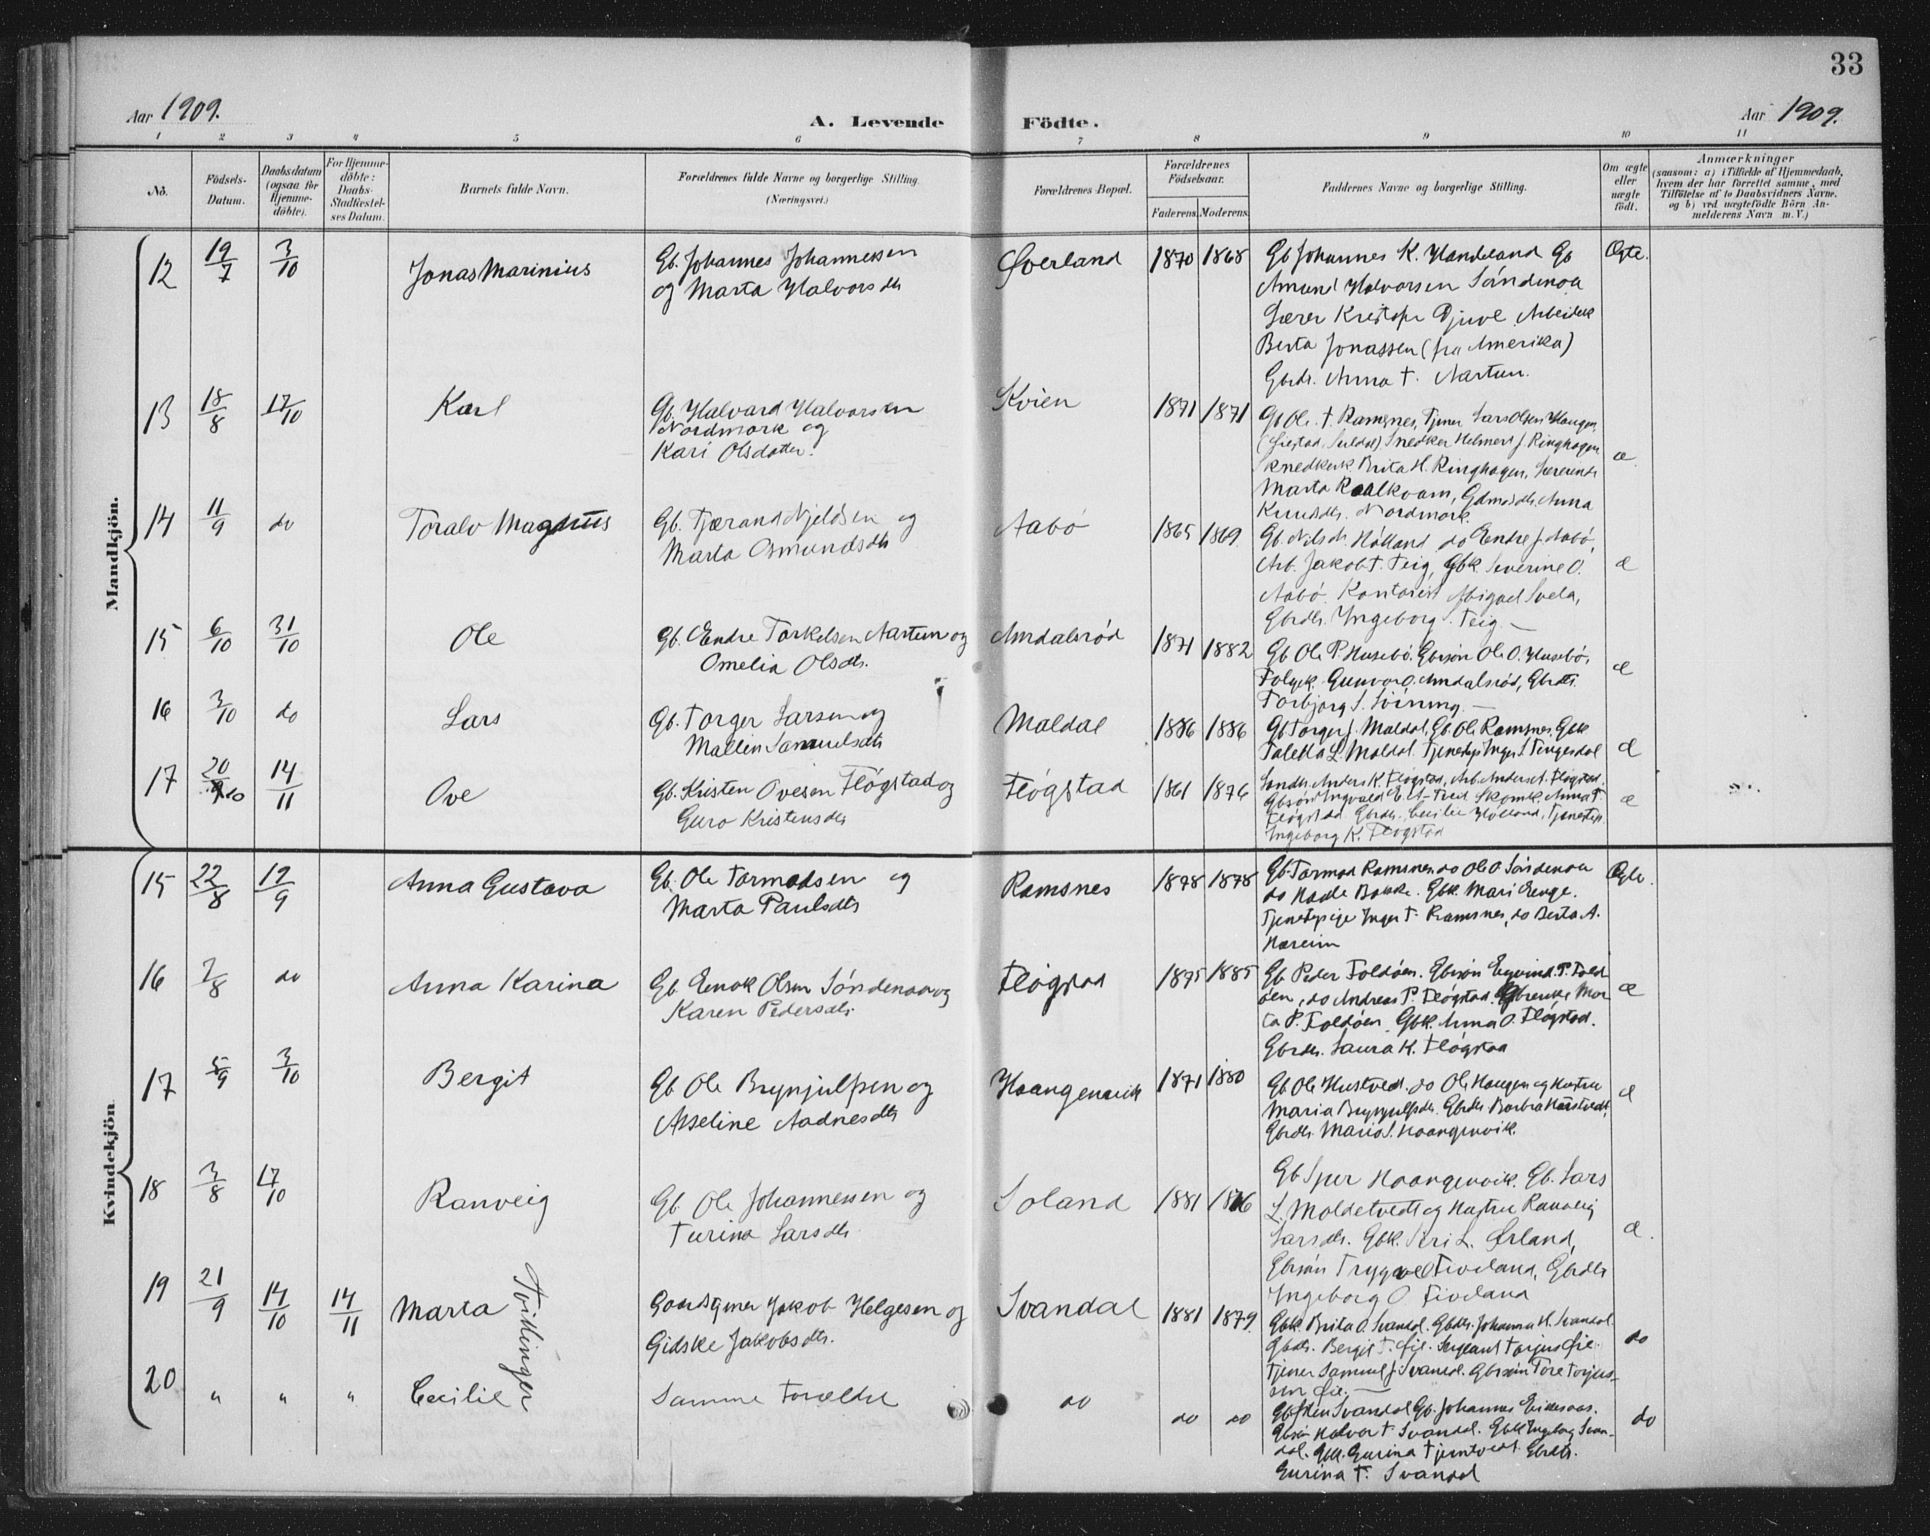 33
Aar 1909.
A. Levende Födte.
Aar 1909.
1 2 3 4 5 6 7 8 9 10 11
No.
Födsels-Datum.
Daabsdatum (ogsaa for Hjemme-döbte).
For Hjemme-döbte: Daabs-Stadfæstel-ses Datum.
Barnets fulde Navn.
Forældrenes fulde Navne og borgerlige Stilling. (Næringsvei.)
Forældrenes Bopæl.
Forældrenes Födselsaar.
Faderens. Moderens.
Faddernes Navne og borgerlige Stilling.
Om ægte eller uægte födt.
Anmærkninger
(saasom: a) i Tilfælde af Hjemmedaab,
hvem der har forrettet samme, med
Tilföielse af to Daabsvidners Navne.
og b) ved uægtefödte Börn An-
melderens Navn m. V.)
Mandkjön.
12 19/7 3/10 Jonas Marinius
Gb. Johannes Johannessen
og Marta Halvorsdtr
Øverland 1870 1868
Gb Johannes K. Handeland Gb
Amund Halvorsen Söndenaa
Lærer Kristofer Djuve Arbeidsk
Berta Jonassen (fra Amerika)
Gbrdr. Anna T. Aartun.
Ægte.
13 18/8 17/10 Karl
Gb. Halvard Halvorsen
Nordmork og
Kari Olsdatter.
Kvien 1871 1871
Gb Ole T. Ramsnes, Tjener Lars Olsen Haugen
Snedker Helmert J. Ringhagen
Snedkerk Brita H. Ringhagen,
Marta Kaalkvam, Anna
Knudsdtr. Nordmork.
æ
14 11/9 do Toralv Magnus
Gb. Tjærand Njeldsen og
Marta Osmundsdtr
Aabö 1865 1869
Gb. Nils Hölland do Endre J. Aabö,
Arb. Jakob T. Teig, Gbk. Severine O.
Aabö. Kontorist Abigael Svela,
Gbrdtr. Ingeborg Teig.
æ
15 6/10 31/10 Ole
Gb. Endre Torkelsen Aartun og
Omelia Olsdtr.
Amdalsrød 1871 1882
Gb Ole P. Husebö. Gbrsön Ole O. Husebö,
Gunvor O. Amdalsröd, Gbrdtr.
Torbjorg S.
æ
16 3/10 do Lars
Gb. Torger Larsen og
Mallin Samuelsdtr
Maldal 1886 1886
Gb Torger J. Maldal, Gb. Ole Ramsnes, Gbk
Taletta L. Maldal Tjenestep Inger Tengesdal
æ
17 20/10 14/11 Ove
Gb. Kristen Ovesen Flögstad og
Guro Kristensdtr
Flögstad 1861 1876
Anders K. Flögstad, Arb. Anders A. Flögstad
Gbsön Ingvald Anna T.
Flögstad. Gbrdtr. Cecilie Hölland, Tjenestep.
Ingeborg K. Flögstad
æ
Kvindekjön
15 22/8 19/9 Anna Gustava
Gb. Ole Tormodsen og
Marta Paulsdtr
Ramsnes 1878 1878
Gb Tormod Ramsnes, do Ole O. Söndenaa
do Hadle Bakke. Gbk. Mari Enge.
Tjenestepige Inger T. Ramsnes, do Berta A.
Hareim
Ægte.
16 7/8 do Anna Karina
Gb Enok Olsen Söndenaa og
Karen Pedersdtr.
Flögstad 1875 1885
Gb Peder Foldöen. Gbrsön Eyvind P. Fold
öen, do Andreas P. Flögstad. Gbrenke Mar
ta P. Foldöen. Gbk. Anna O. Flögstad.
Gbrdtr. Laura K. Flögstad
æ
17 5/9 3/10 Bergit
Gb Ole Brynjulfsen og
Asseline Aadnesdtr
Haangenvik 1871 1880
Gb Ole Hustvedt do Ole Haugen og Hustru
Maria Brynjulfsdtr. Gbrdtr Borbra Hustvedt,
Gbrdtr. Maria S. Haangenvik.
æ
18 3/8 17/10 Ranveig
Gb Ole Johannessen og
Turina Larsdtr
Soland 1881
Gb Sjur Haangenvik. Gb. Lars
L. Moldetvedt og Hustru Ranveig
Larsdtr. Gbk. Siri L. Ørland,
Gbrsön Trygve O Fiveland, Gbrdtr
Ingeborg O Fiveland
æ.
19 21/9 14/10 14/11 Marta Tvillinger
Gaardgmer Jakob Helgesen og
Gidske Jakobsdtr.
Svandal 1881 1879.
Gbk. Brita O. Svandal. Gbrdtr. Johanna H. Svandal
Gbrdtr. Bergit T. Øie. Sergeant Torjus Øie.
Tjener Samuel J. Svandal. Gbrsön Tore Torjus-
sen Øie.
do
20 " " " Cecilie
Samme Forældre
do do do
Gb Sven Svandal Gb. Johannes Eidesaas.
Gbrsön Halvor T. Svandal. Gbk Ingeborg Svan-
dal. Gbk. Eurina Tjerntvedt Gbrdtr.
Eurina T. Svandal
do